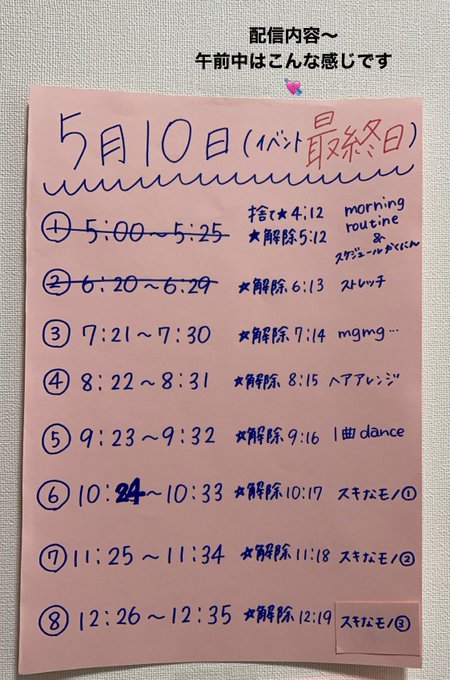 配信内容〜
午前中はこんな感じです
💘
5月10日(イベント最終日)
① 5:00〜5:25 捨て★4:12 ★解除5:12 morning routine & スケジュールかくにん
② 6:20〜6:29 ★解除6:13 ストレッチ
③ 7:21〜7:30 ★解除7:14 mgmg…
④ 8:22〜8:31 ★解除8:15 ヘアアレンジ
⑤ 9:23〜9:32 ★解除9:16 1曲dance
⑥ 10:24〜10:33 ★解除10:17 スキなモノ①
⑦ 11:25〜11:34 ★解除11:18 スキなモノ②
⑧ 12:26〜12:35 ★解除12:19 スキなモノ③